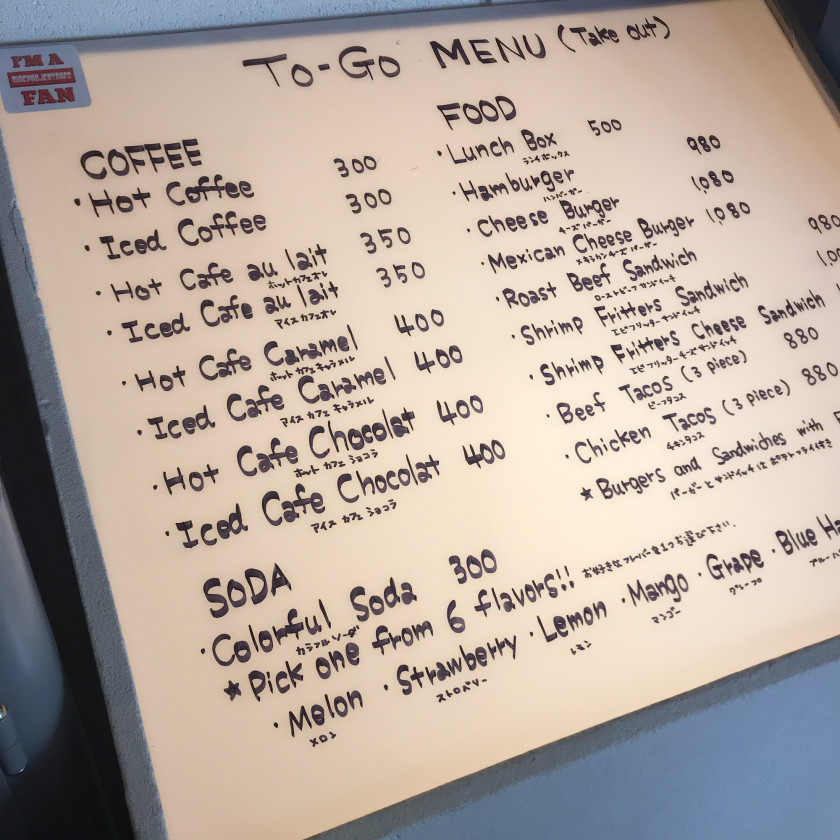 I'M A
FAN
To-Go MENU (Take out)
COFFEE
・Hot Coffee 300
・Iced Coffee 300
・Hot Cafe au lait 350
ホットカフェオレ
・Iced Cafe au lait 350
アイスカフェオレ
・Hot Cafe Caramel 400
ホット カフェ キャラメル
・Iced Cafe Caramel 400
アイス カフェ キャラメル
・Hot Cafe Chocolat 400
ホット カフェ ショコラ
・Iced Cafe Chocolat 400
アイス カフェ ショコラ
FOOD
・Lunch Box 500
ランチボックス
・Hamburger 980
ハンバーガー
・Cheese Burger 1,080
チーズバーガー
・Mexican Cheese Burger 1,080
メキシカンチーズバーガー
・Roast Beef Sandwich 980
ローストビーフサンドイッチ
・Shrimp Fritters Sandwich
エビフリッターサンドイッチ
・Shrimp Fritters Cheese Sandwich
エビフリッターチーズサンドイッチ
・Beef Tacos (3 piece) 880
ビーフタコス
・Chicken Tacos (3 piece) 880
チキンタコス
★Burgers and Sandwiches with
バーガーとサンドイッチはポテトフライ付き
SODA
・Colorful Soda 300
カラフルソーダ
★Pick one from 6 flavors!! お好きなフレーバーを1つお選び下さい.
・Melon ・Strawberry ・Lemon ・Mango ・Grape ・Blue
メロン ストロベリー レモン マンゴー グレープ